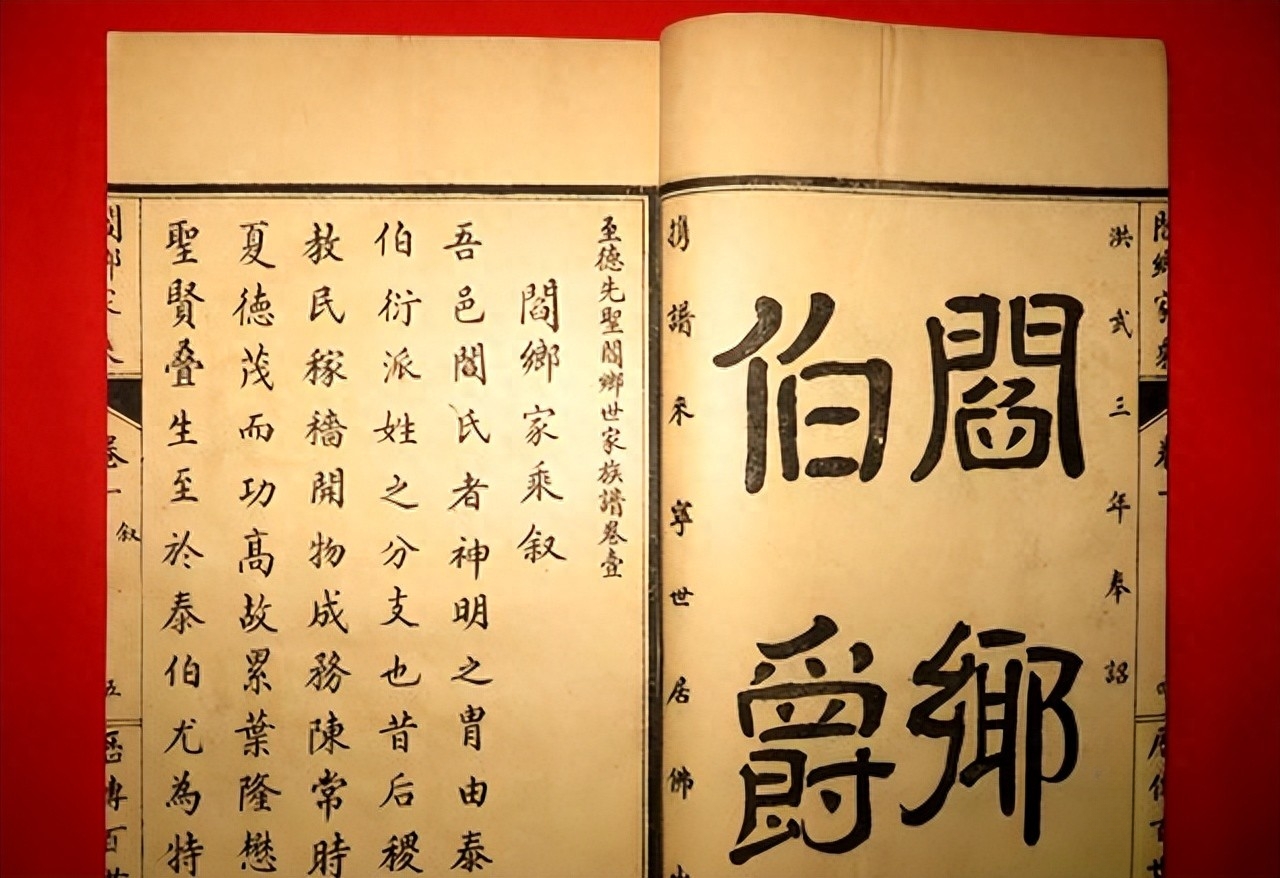 洪武三年奉詔
閻鄉
伯爵
携譜来寧世居佛
至德先聖閻鄉世家族譜卷壹
閻鄉家乘叙
吾邑閻氏者神明之冑由泰
伯衍派姓之分支也昔后稷
教民稼穡開物成務陳常時
夏德茂而功高故累葉隆懋
聖賢叠生至於泰伯尤為特
卷一
叙
五